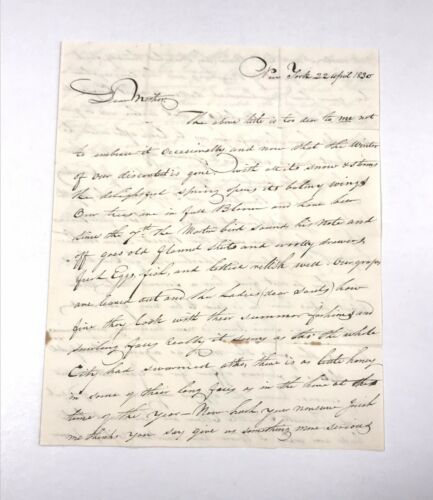 New York 22 April 1830
Dear
The above title is too dear to me not
to embrace it occasionally and now that the Winter
of our discontent is gone with all its snow & storms
the delightful spring opens its balmy wings
Our trees are in full Bloom and have been
since the 7th the Martin bird sound his note and
off goes old flannel shirts and woolly drawers
fresh Eggs, fish, and lettice relish well
are leaved out and the Ladies (dear Souls) how
fine they look with their summer fashions and
smiling faces really it seems as tho' the whole
City had swarmed, altho there is as little honey
in some of their long faces as in the hive at this
time of the year — Now hush your nonsense Josiah
me thinks you say give us something more serious